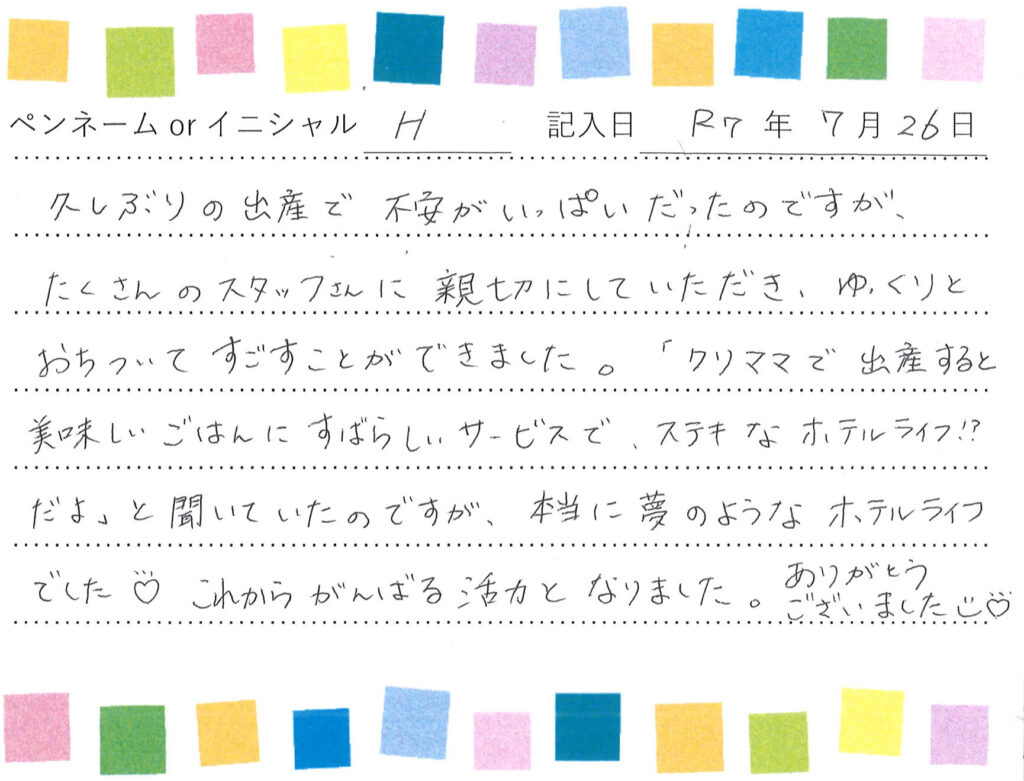 ペンネーム or イニシャル H 記入日 R7 年 7 月 26 日
久しぶりの出産で 不安がいっぱいだったのですが、
たくさんのスタッフさんに 親切にしていただき、ゆっくりと
おちついて すごすことができました。「クリママで 出産すると
美味しい ごはんに すばらしい サービスで、ステキな ホテルライフ!?
だよ」と聞いていたのですが、本当に夢のような ホテルライフ
でした♡ これから がんばる 活力と なりました。ありがとう
ございました♡